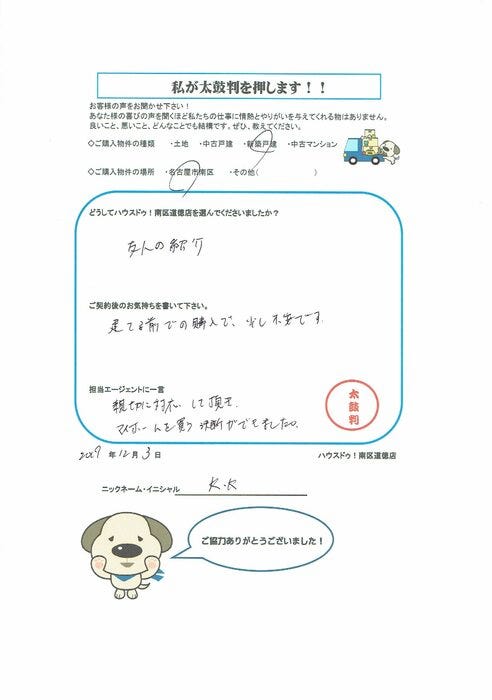 私が太鼓判を押します！！
お客様の声をお聞かせ下さい！
あなた様の喜びの声を聞くほど私たちの仕事に情熱とやりがいを与えてくれる物はありません。
良いこと、悪いこと、どんなことでも結構です。ぜひ、教えてください。
◇ご購入物件の種類 ・土地 ・中古戸建 ・新築戸建 ・中古マンション
◇ご購入物件の場所 ・名古屋市南区 ・その他( )
どうしてハウスドゥ！南区道徳店を選んでくださいましたか？
友人の紹介
ご契約後のお気持ちを書いて下さい。
建てる前での購入で、少し不安です。
担当エージェントに一言
親切に対応して頂き、
マイホームを買う決断ができました。
太鼓判
2017 年 12 月 3 日
ハウスドゥ！南区道徳店
ニックネーム・イニシャル K.K
ご協力ありがとうございました！